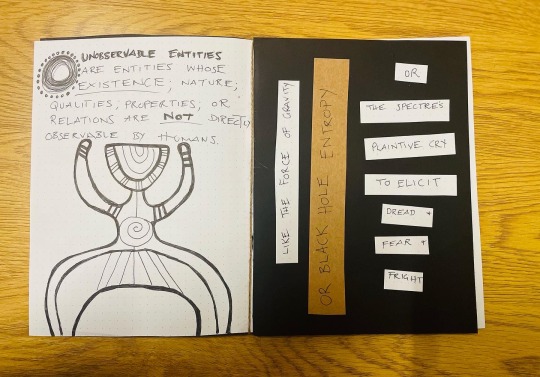 UNOBSERVABLE ENTITIES
ARE ENTITIES WHOSE
EXISTENCE; NATURE;
QUALITIES; PROPERTIES; OR
RELATIONS ARE NOT DIRECTLY
OBSERVABLE BY HUMANS.
LIKE THE FORCE OF GRAVITY
OR BLACK HOLE ENTROPY
OR
THE SPECTRE'S
PLAINTIVE CRY
TO ELICIT
DREAD +
FEAR +
FRIGHT